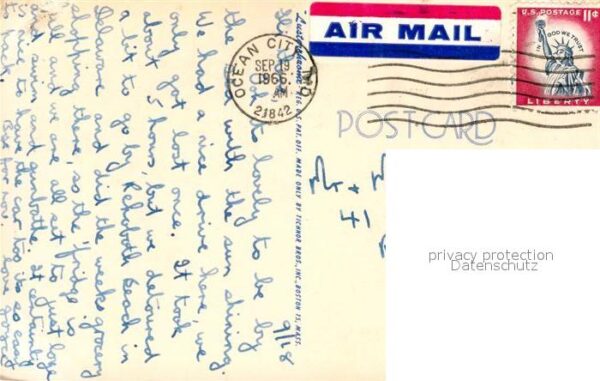 AIR MAIL
U.S. POSTAGE 11¢
IN GOD WE TRUST
LIBERTY
OCEAN CITY, MD.
SEP 19
AM
1966
21842
POST CARD
"Lusterchrome" REG. U.S. PAT. OFF. MADE ONLY BY TICHNOR BROS., INC., BOSTON 15, MASS.
Mr + M
41
privacy protection
Datenschutz
9/18
It's lovely to be by
the with the sun shining.
We had a nice drive here, we
about got host once. It took
a bit 5 hours, but we detoured
a little to go by Rehoboth Beach in
Delaware and did the weeks grocery
shopping there, so the 'fridge is
all and we are all set to just loaf
and swim and sunbathe. It certainly
is to have the car too, it's so easy
pack. Bye for now. love